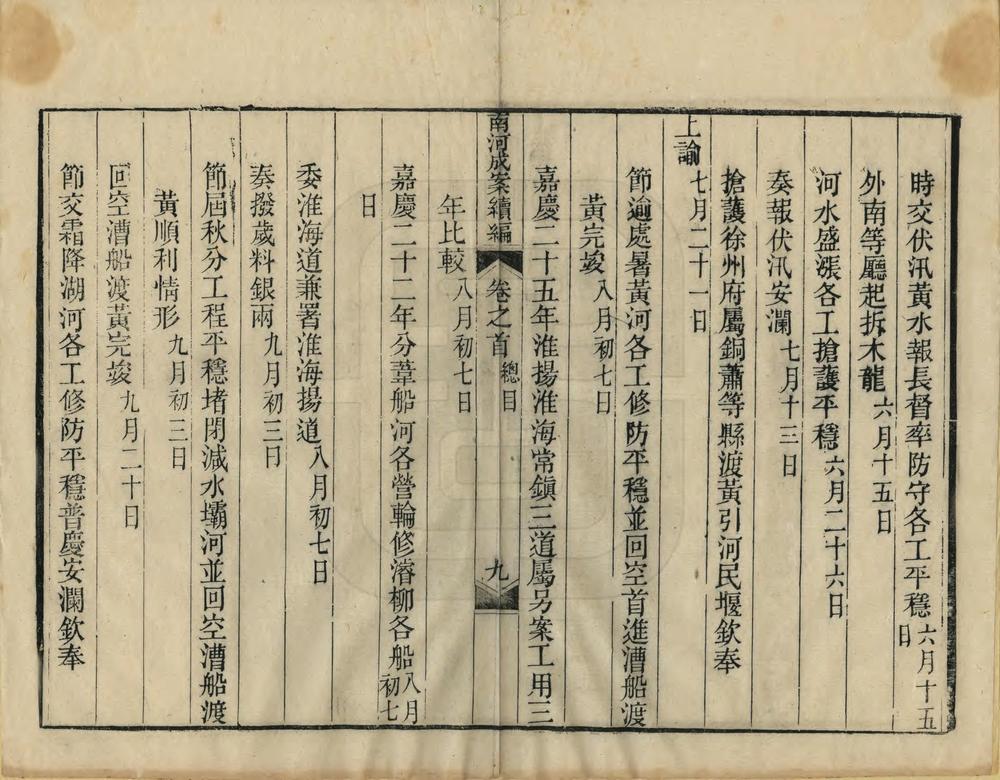 時交伏汛黃水報長督率防守各工平穩六月十五日
外南等廳起拆木龍六月十五日
河水盛漲各工搶護平穩六月二十六日
奏報伏汛安瀾七月十三日
搶護徐州府屬銅蕭等縣渡黃引河民堰欽奉
上諭七月二十一日
節逾處暑黃河各工修防平穩並回空首進漕船渡
黃完竣八月初七日
嘉慶二十五年淮揚淮海常鎮三道屬另案工用三
南河成案續編 卷之首 總目 九
年比較八月初七日
嘉慶二十二年分葦船河各營輪修濬柳各船八月初七
日
委淮海道兼署淮海揚道八月初七日
奏撥歲料銀兩九月初三日
節屆秋分工程平穩堵閉減水壩河並回空漕船渡
黃順利情形九月初三日
回空漕船渡黃完竣九月二十日
節交霜降湖河各工修防平穩普慶安瀾欽奉